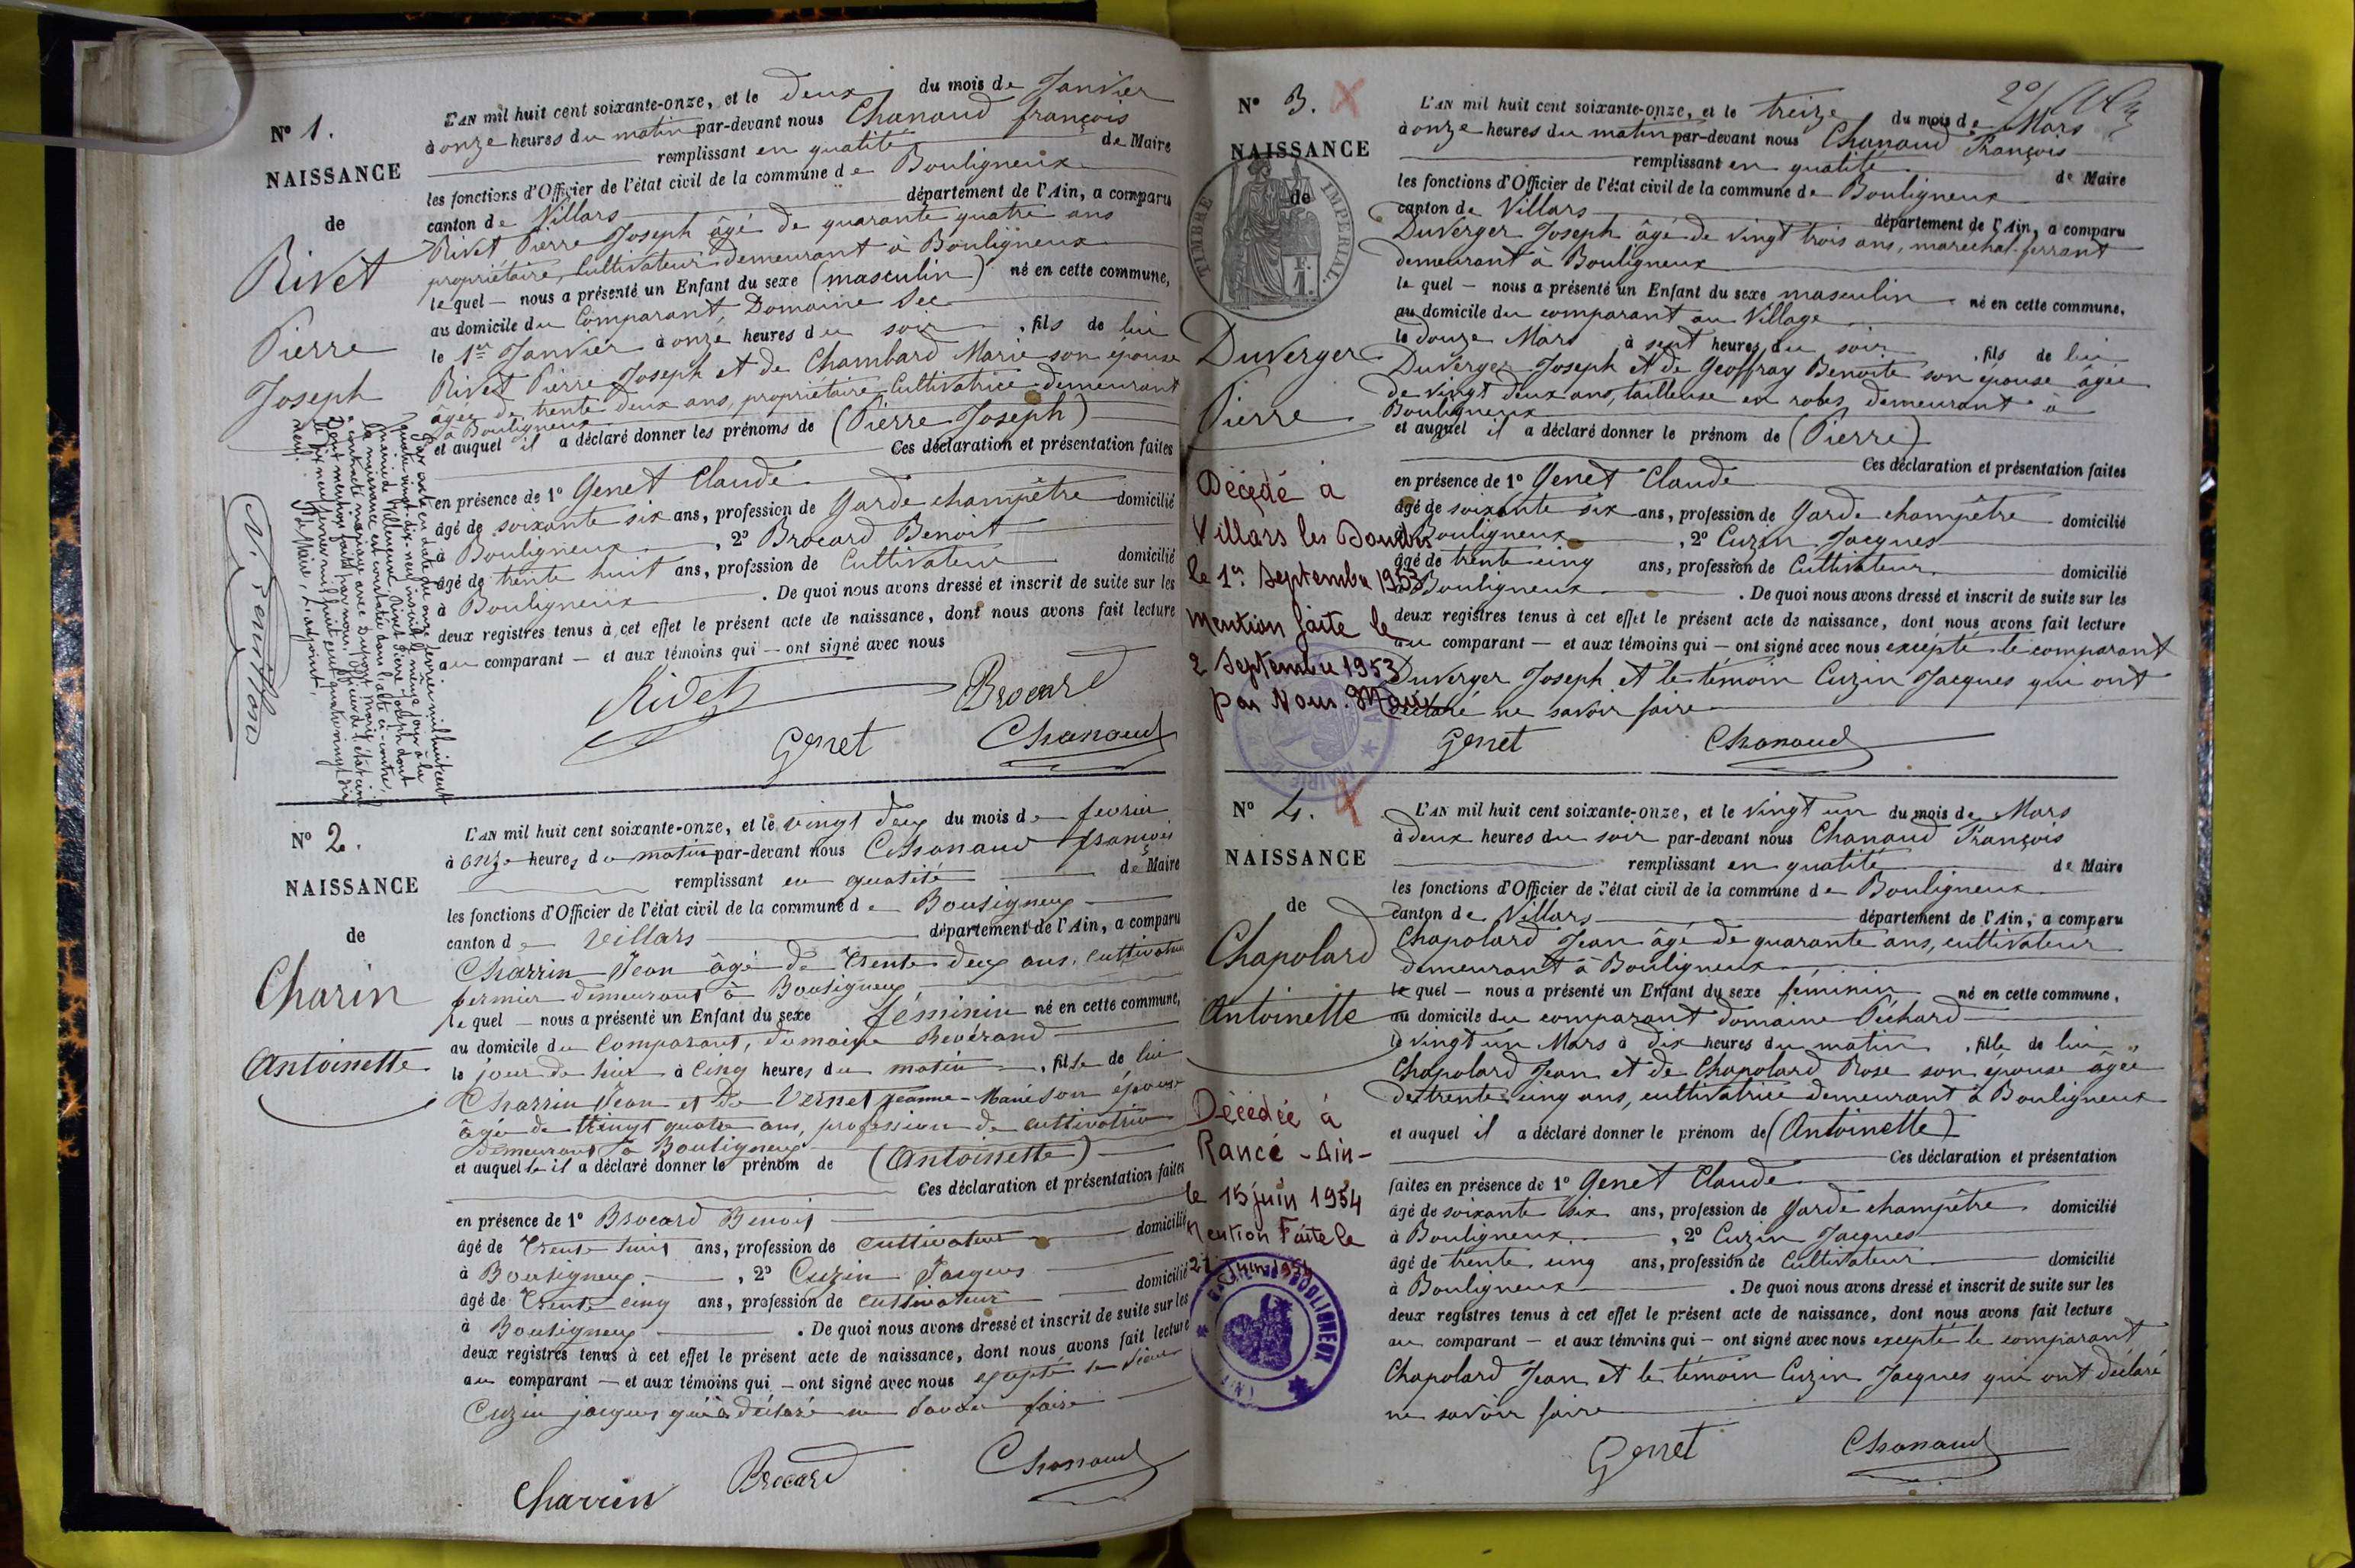 N° 1.
NAISSANCE
de
Rivet
Pierre
Joseph
L'AN mil huit cent soixante-onze, et le deux du mois de Janvier
à onze heures du matin par-devant nous Chanaud françois
remplissant en qualité de Maire
les fonctions d'Officier de l'état civil de la commune de Bouligneux
canton de Villars département de l'Ain, a comparu
Rivet Pierre Joseph âgé de quarante quatre ans
propriétaire, Cultivateur demeurant à Bouligneux
lequel — nous a présenté un Enfant du sexe (masculin) né en cette commune,
au domicile du Comparant, Domaine Sec
le 1er Janvier à onze heures du soir, fils de lui
Rivet Pierre Joseph et de Chambard Marie son épouse
âgée de trente deux ans, propriétaire Cultivatrice demeurant
à Bouligneux
et auquel il a déclaré donner les prénoms de (Pierre Joseph)
Ces déclaration et présentation faites
en présence de 1° Genet Claude
âgé de soixante six ans, profession de Garde champêtre domicilié
à Bouligneux, 2° Brocard Benoit
âgé de trente huit ans, profession de Cultivateur domicilié
à Bouligneux. De quoi nous avons dressé et inscrit de suite sur les
deux registres tenus à cet effet le présent acte de naissance, dont nous avons fait lecture
au comparant — et aux témoins qui — ont signé avec nous
Rivet Brocard
Genet Chanaud
Par acte en date du onze février mil huit cent
quatre vingt dix-neuf inscrit le même jour à la
mairie de Villeneuve, Rivet Pierre Joseph dont
la naissance est constatée dans l'acte ci-contre,
a contracté mariage avec Dupont Marie
Dont mention faite par nous, officier de l'état civil
le dix neuf février mil huit cent quatre vingt dix
neuf.
Le Maire, L'adjoint,
N° 2.
NAISSANCE
de
Charin
Antoinette
L'AN mil huit cent soixante-onze, et le vingt deux du mois de fevrier
à onze heures du matin par-devant nous Chanaud françois
remplissant en qualité de Maire
les fonctions d'Officier de l'état civil de la commune de Bouligneux
canton de Villars département de l'Ain, a comparu
Charrin Jean âgé de trente deux ans, cultivateur
fermier demeurant à Bouligneux
lequel — nous a présenté un Enfant du sexe féminin né en cette commune,
au domicile du Comparant, domaine Revérand
le jour de hier à Cinq heures du matin, fille de lui
Charrin Jean et de Vernet Jeanne-Marie son épouse
âgé de vingt quatre ans, profession de cultivatrice
demeurant à Bouligneux
et auquelle il a déclaré donner le prénom de (Antoinette)
Ces déclaration et présentation faites
en présence de 1° Brocard Benoit
âgé de trente huit ans, profession de cultivateur domicilié
à Bouligneux, 2° Cuzin Jacques
âgé de trente cinq ans, profession de cultivateur domicilié
à Bouligneux. De quoi nous avons dressé et inscrit de suite sur les
deux registres tenus à cet effet le présent acte de naissance, dont nous avons fait lecture
au comparant — et aux témoins qui — ont signé avec nous excepté le sieur
Cuzin jacques qui a déclaré ne savoir faire
Charrin Brocard Chanaud
N° 3.
NAISSANCE
de
TIMBRE IMPERIAL
Duverger
Pierre
L'AN mil huit cent soixante-onze, et le treize du mois de Mars
à onze heures du matin par-devant nous Chanaud François
remplissant en qualité de Maire
les fonctions d'Officier de l'état civil de la commune de Bouligneux
canton de Villars département de l'Ain, a comparu
Duverger Joseph âgé de vingt trois ans, marechal-ferrant
demeurant à Bouligneux
lequel — nous a présenté un Enfant du sexe masculin né en cette commune,
au domicile du comparant au Village
le douze Mars à sept heures du soir, fils de lui
Duverger Joseph et de Geoffray Benoite son épouse âgée
de vingt deux ans, tailleuse en robes, demeurant à
Bouligneux
et auquel il a déclaré donner le prénom de (Pierre)
Ces déclaration et présentation faites
en présence de 1° Genet Claude
âgé de soixante six ans, profession de Garde champêtre domicilié
à Bouligneux, 2° Cuzin Jacques
âgé de trente cinq ans, profession de Cultivateur domicilié
à Bouligneux. De quoi nous avons dressé et inscrit de suite sur les
deux registres tenus à cet effet le présent acte de naissance, dont nous avons fait lecture
au comparant — et aux témoins qui — ont signé avec nous excepté le comparant
Duverger Joseph et le témoin Cuzin Jacques qui ont
déclaré ne savoir faire
Genet Chanaud
Décédé à
Villars les Dombes
le 1er Septembre 1953
Mention faite le
2 Septembre 1953
par Nous. Maire
N° 4.
NAISSANCE
de
Chapolard
Antoinette
L'AN mil huit cent soixante-onze, et le vingt un du mois de Mars
à deux heures du soir par-devant nous Chanaud François
remplissant en qualité de Maire
les fonctions d'Officier de l'état civil de la commune de Bouligneux
canton de Villars département de l'Ain, a comparu
Chapolard Jean âgé de quarante ans, cultivateur
demeurant à Bouligneux
lequel — nous a présenté un Enfant du sexe féminin né en cette commune,
au domicile du comparant domaine Péchard
le vingt un Mars à dix heures du matin, fille de lui
Chapolard Jean et de Chapolard Rose son épouse âgée
de trente cinq ans, cultivatrice demeurant à Bouligneux
et auquel il a déclaré donner le prénom de (Antoinette)
Ces déclaration et présentation
faites en présence de 1° Genet Claude
âgé de soixante six ans, profession de Garde champêtre domicilié
à Bouligneux, 2° Cuzin Jacques
âgé de trente cinq ans, profession de Cultivateur domicilié
à Bouligneux. De quoi nous avons dressé et inscrit de suite sur les
deux registres tenus à cet effet le présent acte de naissance, dont nous avons fait lecture
au comparant — et aux témoins qui — ont signé avec nous excepté le comparant
Chapolard Jean et le témoin Cuzin Jacques qui ont déclaré
ne savoir faire
Genet Chanaud
Décédée à
Rancé - Ain -
le 15 juin 1954
Mention Faite le
21 Juin 1954
BOULIGNEUX